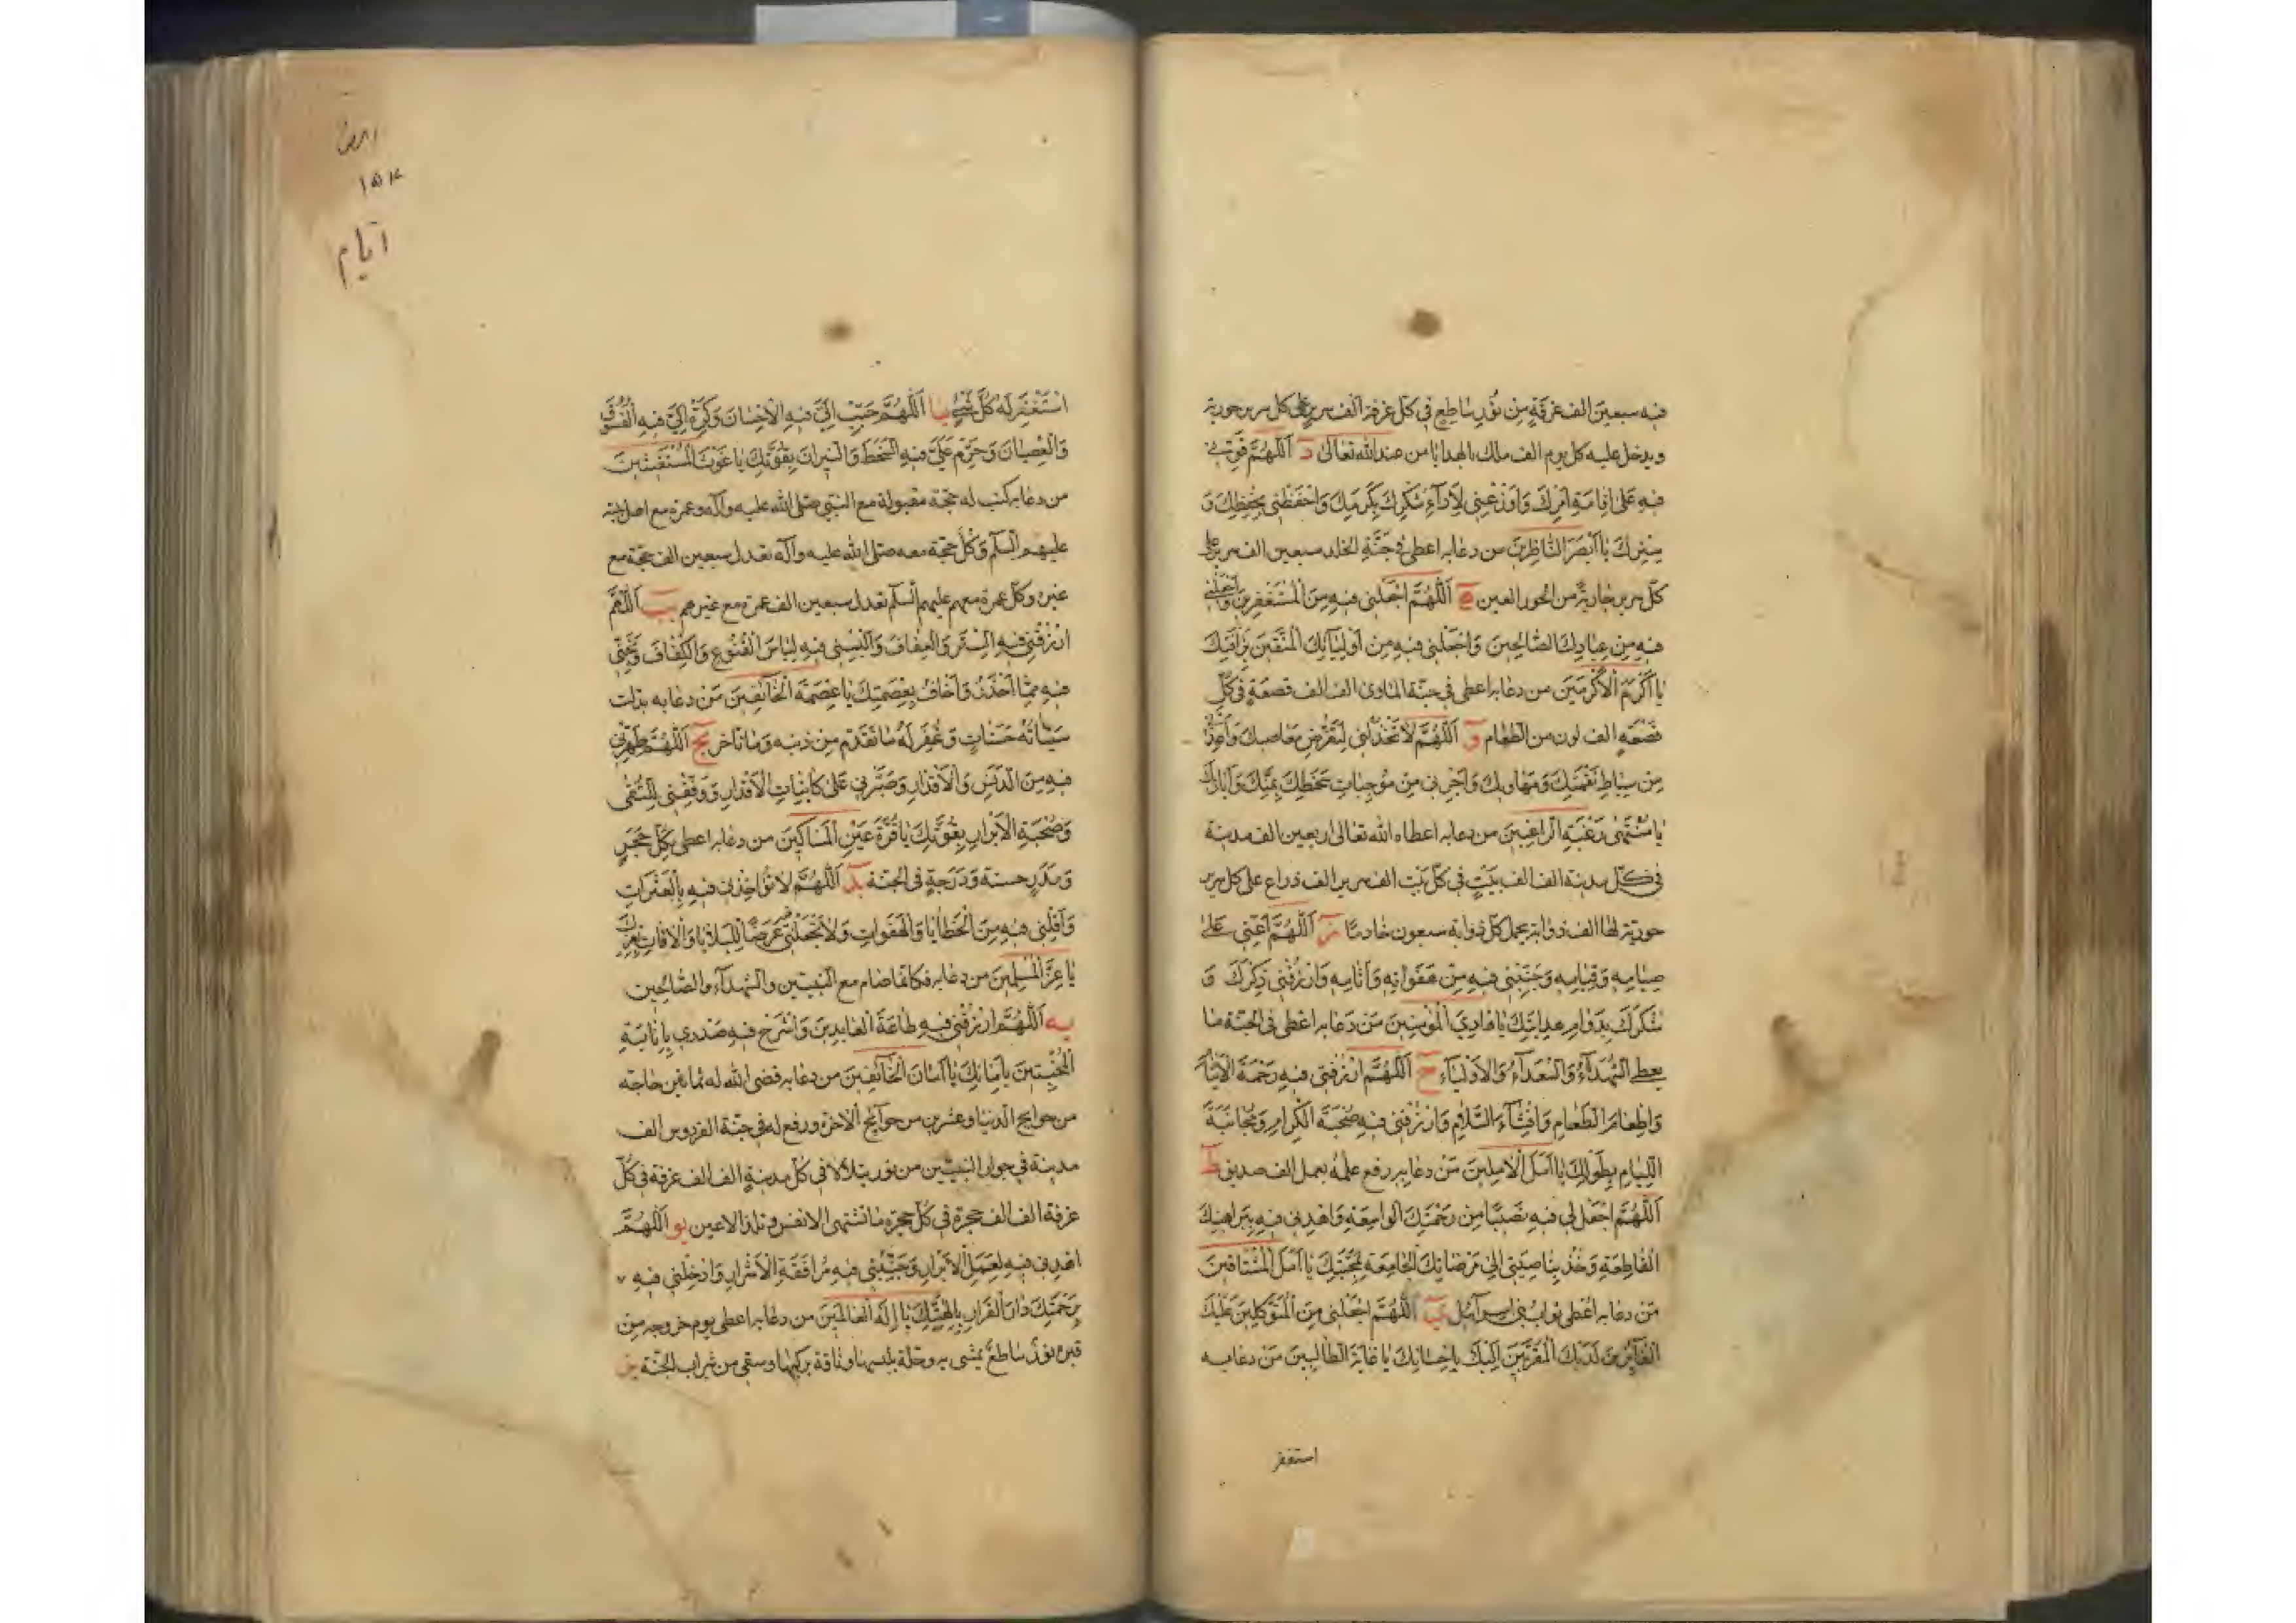 فيه سبعين الف غرفة من نور ساطع في كل غرفة الف سرير على كل سرير حورية
ويدخل عليه كل يوم الف ملك بالهدايا من عند الله تعالى د اَللّهُمَّ قَوِّنى
فيهِ عَلى اِقامَةِ اَمْرِكَ وَاَوْزِعْنى لِاَدآءِ شُكْرِكَ بِكَرَمِكَ وَاحْفَظْنى بِحِفْظِكَ وَ
سِتْرِكَ يا اَبْصَرَ النّاظِرينَ من دعا به اعطى في جَنَّةِ الخلد سبعين الف سرير على
كلّ سرير جارية من الحور العين ه اَللّهُمَّ اجْعَلْنى فيهِ مِنَ الْمُسْتَغْفِرينَ وَاجْعَلْنى
فيهِ مِن عِبادِكَ الصّالِحينَ وَاجْعَلْنى فيهِ مِن اَوْلِيآئِكَ الْمُتَّقينَ بِرَأْفَتِكَ
يا اَكْرَمَ الْاَكْرَمينَ من دعا به اعطى في جنّة الماوى الف الف قصعة في كلّ
قصعة الف لون من الطعام و اَللّهُمَّ لا تَخْذُلْنى لِتَعَرُّضِ مَعاصيكَ وَاَعِذْنى
مِن سِياطِ نَقِمَتِكَ وَمَهاويكَ وَاَجِرْنى مِن مُوجِباتِ سَخَطِكَ بِمَنِّكَ وَاَياديكَ
يا مُنْتَهى رَغْبَةِ الرّاغِبينَ من دعا به اعطاه الله تعالى اربعين الف مدينة
في كلّ مدينة الف الف بيت في كلّ بيت الف سرير الف ذراع على كل سرير
حورية لها الف ذوابة يحمل كلّ ذوابة سبعون خادما ز اَللّهُمَّ اَعِنّى عَلى
صِيامِهِ وَقِيامِهِ وَجَنِّبْنى فيهِ مِن هَفَواتِهِ وَآثامِهِ وَارْزُقْنى ذِكْرَكَ وَ
شُكْرَكَ بِدَوامِ هِدايَتِكَ يا هادِيَ الْمُؤْمِنينَ مَن دَعا به اعطى في الجنّة ما
يعطى الشهدآء والسعدآء والاوليآء ح اَللّهُمَّ ارْزُقْنى فيهِ رَحْمَةَ الْاَيْتامِ
وَاِطْعامَ الطَّعامِ وَاِفْشآءَ السَّلامِ وَارْزُقْنى فيهِ صُحْبَةَ الْكِرامِ وَمُجانَبَةَ
اللِّئامِ بِطَوْلِكَ يا اَمَلَ الْاٰمِلينَ مَن دعا به رفع عمله بعمل الف صديق ط
اَللّهُمَّ اجْعَلْ لى فيهِ نَصيبًا مِن رَحْمَتِكَ الْواسِعَةِ وَاهْدِنى فيهِ بِبَراهينِكَ
الْقاطِعَةِ وَخُذْ بِناصِيَتى اِلى مَرْضاتِكَ الْجامِعَةِ بِمَحَبَّتِكَ يا اَمَلَ الْمُشْتاقينَ
مَن دعا به اعطى ثواب بنى اسرآئيل ى اَللّهُمَّ اجْعَلْنى مِنَ الْمُتَوَكِّلينَ عَلَيْكَ
الْفآئِزينَ لَدَيْكَ الْمُقَرَّبينَ اِلَيْكَ بِاِحْسانِكَ يا غايَةَ الطّالِبينَ مَن دعا به
استغفر
١٥٤
ايام
اسْتَغْفَرَ لَهُ كُلُّ شَىْءٍ يا اَللّهُمَّ حَبِّبْ اِلَىَّ فيهِ الْاِحْسانَ وَكَرِّهْ اِلَىَّ فيهِ الْفُسُوقَ
وَالْعِصْيانَ وَحَرِّمْ عَلَىَّ فيهِ السَّخَطَ وَالنّيرانَ بِقُوَّتِكَ يا غَوْثَ الْمُسْتَغيثينَ
من دعا به كتب له حجّة مقبولة مع النبى صلى الله عليه وآله وعمرة مع اهل بيته
عليهم السلم وكلّ حجّة معه صلى الله عليه وآله تعدل سبعين الف حجّة مع
غيره وكل عمرة معهم عليهم السلم تعدل سبعين الف عمرة مع غيرهم يب اَللّهُمَّ
ارْزُقْنى فيهِ السِّتْرَ وَالْعِفافَ وَاَلْبِسْنى فيهِ لِباسَ الْقُنُوعِ وَالْكَفافَ وَنَجِّنى
فيهِ مِمّا اَحْذَرُ وَاَخافُ بِعِصْمَتِكَ يا عِصْمَةَ الْخآئِفينَ مَن دعا به بدلت
سيّاته حسنات وَغُفِرَ لَهُ ما تقدّم من ذنبه وما تاخر يج اَللّهُمَّ طَهِّرْنى
فيهِ مِنَ الدَّنَسِ وَالْاَقْذارِ وَصَبِّرْنى عَلى كآئِناتِ الْاَقْدارِ وَوَفِّقْنى لِلتُّقى
وَصُحْبَةِ الْاَبْرارِ بِقُوَّتِكَ يا قُرَّةَ عَيْنِ الْمَساكينَ من دعا به اعطى بكلّ حجر
ومدر حسنة ودرجة فى الجنّة يد اَللّهُمَّ لا تُؤاخِذْنى فيهِ بِالْعَثَراتِ
وَاَقِلْنى فيهِ مِنَ الْخَطايا وَالْهَفَواتِ وَلا تَجْعَلْنى غَرَضًا لِلْبَلايا وَالْآفاتِ بِعِزِّكَ
يا عِزَّ الْمُسْلِمينَ من دعا به فكانما صام مع النبيّين والشهدآء والصالحين
يه اَللّهُمَّ ارْزُقْنى فيهِ طاعَةَ الْعابِدينَ وَاشْرَحْ فيهِ صَدْرى بِاِنابَةِ
الْمُخْبِتينَ بِاَمانِكَ يا اَمانَ الْخآئِفينَ من دعا به قضى الله له ثمانين حاجة
من حوايج الدنيا وعشرين من حوآئج الآخرة ورفع له في جنّة الفردوس الف
مدينة في جوار النبيّين من نور يتلألأ في كلّ مدينة الف الف غرفة في كلّ
غرفة الف الف حجرة في كلّ حجرة ما تشتهى الانفس وتلذ الاعين يو اَللّهُمَّ
اهْدِنى فيهِ لِعَمَلِ الْاَبْرارِ وَجَنِّبْنى فيهِ مُرافَقَةَ الْاَشْرارِ وَاَدْخِلْنى فيهِ
بِرَحْمَتِكَ دارَ الْقَرارِ بِاِلهِيَّتِكَ يا اِلهَ الْعالَمينَ من دعا به اعطى يوم خروجه من
قبره نور ساطع يمشى به وحلّة يلبسها وناقة يركبها وسقى من شراب الجنّة يز